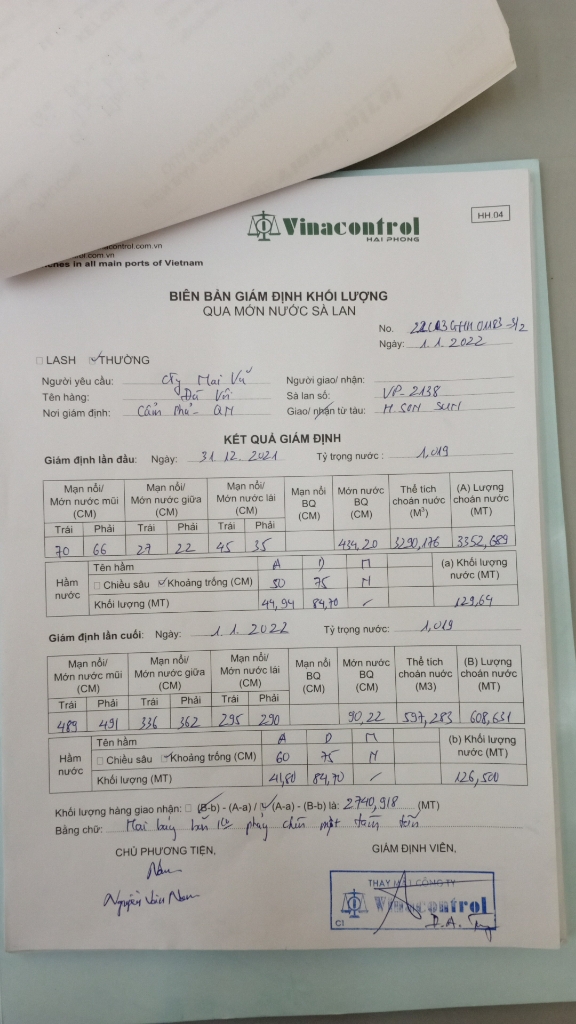 Vinacontrol
HẢI PHÒNG
HH.04
nacontrol.com.vn
ol.com.vn
ches in all main ports of Vietnam
BIÊN BẢN GIÁM ĐỊNH KHỐI LƯỢNG
QUA MỚN NƯỚC SÀ LAN
No.
Ngày: 1.1.2022
LASH THƯỜNG
Người yêu cầu: Cty Mai Vũ Người giao/ nhận:
Tên hàng: Đá Vôi Sà lan số: VP-2138
Nơi giám định: Cẩm Phả - QN Giao/ nhận từ tàu: M.SON SUM
KẾT QUẢ GIÁM ĐỊNH
Giám định lần đầu: Ngày: 31 12. 2021 Tỷ trọng nước: 1,019
Mạn nổi/ Mớn nước mũi (CM) Mạn nổi/ Mớn nước giữa (CM) Mạn nổi/ Mớn nước lái (CM) Mạn nổi BQ (CM) Mớn nước BQ (CM) Thể tích choán nước (M³) (A) Lượng choán nước (MT)
Trái Phải Trái Phải Trái Phải
70 66 27 22 45 35 434,20 3290,176 3352,689
Hầm nước Tên hầm A D M (a) Khối lượng nước (MT)
Chiều sâu Khoảng trống (CM) 50 75 N
Khối lượng (MT) 44,94 84,70 / 129,64
Giám định lần cuối: Ngày: 1.1.2022 Tỷ trọng nước: 1,019
Mạn nổi/ Mớn nước mũi (CM) Mạn nổi/ Mớn nước giữa (CM) Mạn nổi/ Mớn nước lái (CM) Mạn nổi BQ (CM) Mớn nước BQ (CM) Thể tích choán nước (M3) (B) Lượng choán nước (MT)
Trái Phải Trái Phải Trái Phải
489 491 336 362 295 290 90,22 597,283 608,631
Hầm nước Tên hầm A D M (b) Khối lượng nước (MT)
Chiều sâu Khoảng trống (CM) 60 75 N
Khối lượng (MT) 41,80 84,70 / 126,500
Khối lượng hàng giao nhận: (B-b) - (A-a) / (A-a) - (B-b) là: 2740,918 (MT)
Bằng chữ: Hai bảy bốn phẩy chín một tám tấn
CHỦ PHƯƠNG TIỆN, GIÁM ĐỊNH VIÊN,
Nam
Nguyễn Văn Nam
THAY MẶT CÔNG TY
Vinacontrol
CI